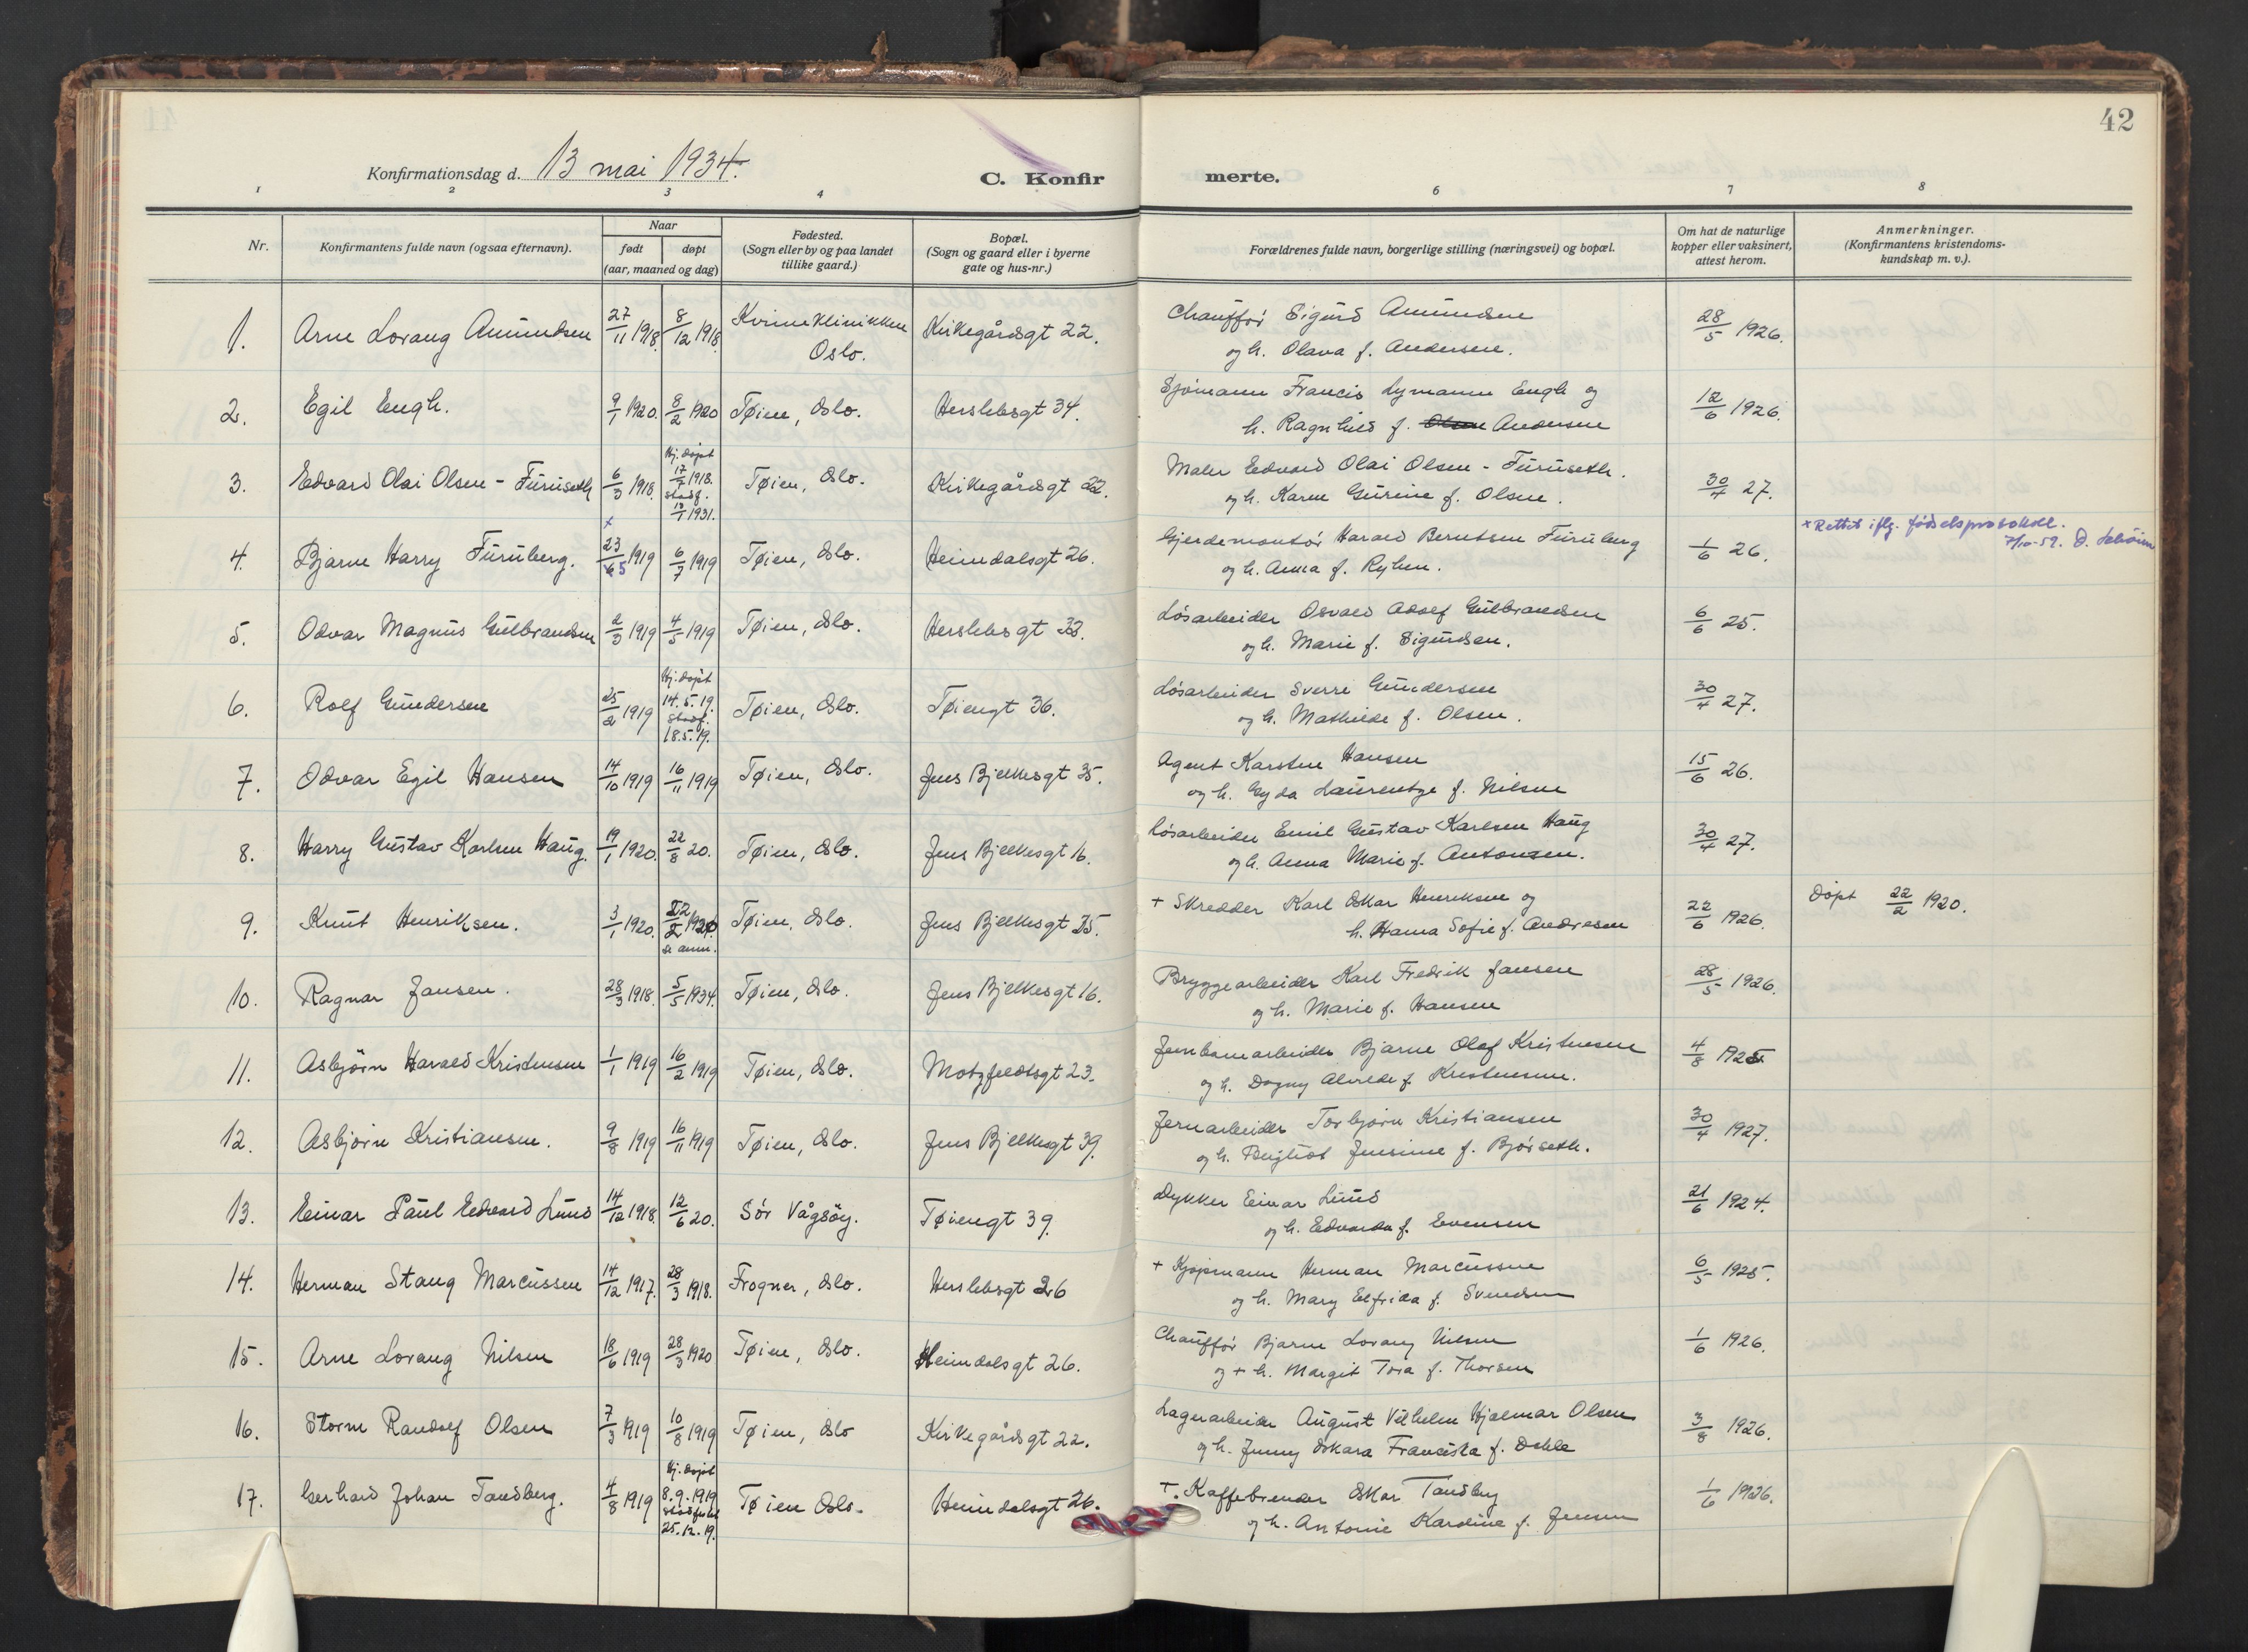 42
Konfirmationsdag d. 13 mai 1934.
C. Konfirmerte.
1 2 3 4 6 7 8
Nr. | Konfirmantens fulde navn (ogsaa efternavn). | Naar født døpt (aar, maaned og dag) | Fødested. (Sogn eller by og paa landet tillike gaard.) | Bopæl. (Sogn og gaard eller i byerne gate og hus-nr.) | Forældrenes fulde navn, borgerlige stilling (næringsvei) og bopæl. | Om hat de naturlige kopper eller vaksinert, attest herom. | Anmerkninger. (Konfirmantens kristendoms-kundskap m. v.).
1. Arne Lorang Amundsen 27/11 1918. 8/12 1918. Kvineklinikken Oslo. Kirkegårdsgt 22. Chauffør Sigurd Amundsen 28/5 1926.
og h. Olava f. Andersen.
2. Egil Engh. 9/1 1920. 8/2 1920 Tøien, Oslo. Herslebsgt 34. Sjømann Francis Lymann Engh og 12/6 1926.
h. Ragnhild f. Olsen Andersen
3. Edvard Olai Olsen - Furuseth 6/3 1918. Hj. døpt 17/7 1918. stadf. 1931. Tøien, Oslo. Kirkegårdsgt 22. Maler Edvard Olai Olsen - Furuseth. 30/4 27.
og h. Karen Gurine f. Olsen.
4. Bjarne Harry Furuberg. + 23/5 1919 6/7 1919 Tøien, Oslo. Heimdalsgt 26. Gjerdemontør Harald Berntsen Furuberg 1/6 26. + Rettet iflg. fødselsprotokoll. 7/10-52.
og h. Anna f. Ryhen.
5. Odvar Magnus Gulbrandsen 2/3 1919 4/5 1919 Tøien, Oslo. Herslebsgt 33. Løsarbeider Osvald Adolf Gulbrandsen 6/6 25.
og h. Marie f. Sigurdsen.
6. Rolf Gundersen 25/2 1919 Hj. døpt 14.5.19. stadf. 18.5.19. Tøien, Oslo. Tøiengt 36. Løsarbeider Sverre Gundersen 30/4 27.
og h. Mathilde f. Olsen.
7. Odvar Egil Hansen 14/10 1919 16/11 1919 Tøien, Oslo. Jens Bjelkesgt 35. Agent Karsten Hansen 15/6 26.
og h. Gyda Laurentze f. Nilsen
8. Harry Gustav Karlsen Haug. 19/1 1920. 22/8 20. Tøien, Oslo. Jens Bjelkesgt 16. Løsarbeider Emil Gustav Karlsen Haug 30/4 27.
og h. Anna Marie f. Antonsen.
9. Knut Henriksen. 3/1 1920. 22/2 1920 se anm. Tøien, Oslo. Jens Bjelkesgt 35. + Skredder Karl Oskar Henriksen og 22/6 1926. Døpt 22/2 1920.
h. Hanna Sofie f. Andresen
10. Ragnar Jansen. 28/3 1918. 5/5 1934. Tøien, Oslo. Jens Bjelkesgt 16. Bryggearbeider Karl Fredrik Jansen 28/5 1926.
og h. Marie f. Hansen
11. Asbjørn Harald Kristensen 1/1 1919 16/2 1919 Tøien, Oslo. Motzfeldtsgt 23. Jernbanearbeider Bjarne Olaf Kristensen 4/8 1925
og h. Dagny Alvilde f. Kristensen.
12. Asbjørn Kristiansen. 9/8 1919 16/11 1919 Tøien, Oslo. Jens Bjelkesgt 39. Jernarbeider Torbjørn Kristiansen 30/4 1927.
og h. Bergliot Jensine f. Bjørseth.
13. Einar Paul Edvard Lund 14/12 1918. 12/6 20. Sør Vågsøy. Tøiengt 39. Dykker Einar Lund 21/6 1924.
og h. Edvarda f. Evensen
14. Herman Stang Marcussen 14/12 1917. 28/3 1918. Frogner, Oslo. Herslebsgt 26 + Kjøpmann Herman Marcussen 6/5 1925.
og h. Mary Elfrida f. Svendsen
15. Arne Lorang Nilsen 18/6 1919 28/3 1920 Tøien, Oslo. Heimdalsgt 26. Chauffør Bjarne Lorang Nilsen 1/6 1926.
og + h. Margit Tora f. Thorsen
16. Storm Randolf Olsen 7/3 1919 10/8 1919 Tøien, Oslo Kirkegårdsgt 22. Lagerarbeider August Vilhelm Hjalmar Olsen 3/8 1926.
og h. Jenny Oskara Franciska f. Dehle
17. Gerhard Johan Tandberg. 4/8 1919 Hj. døpt 8.9.1919 stadfestet 25.12.19. Tøien Oslo. Heimdalsgt 26. +. Kaffebrenner Oskar Tandberg 1/6 1926.
og h. Antonie Karoline f. Jensen